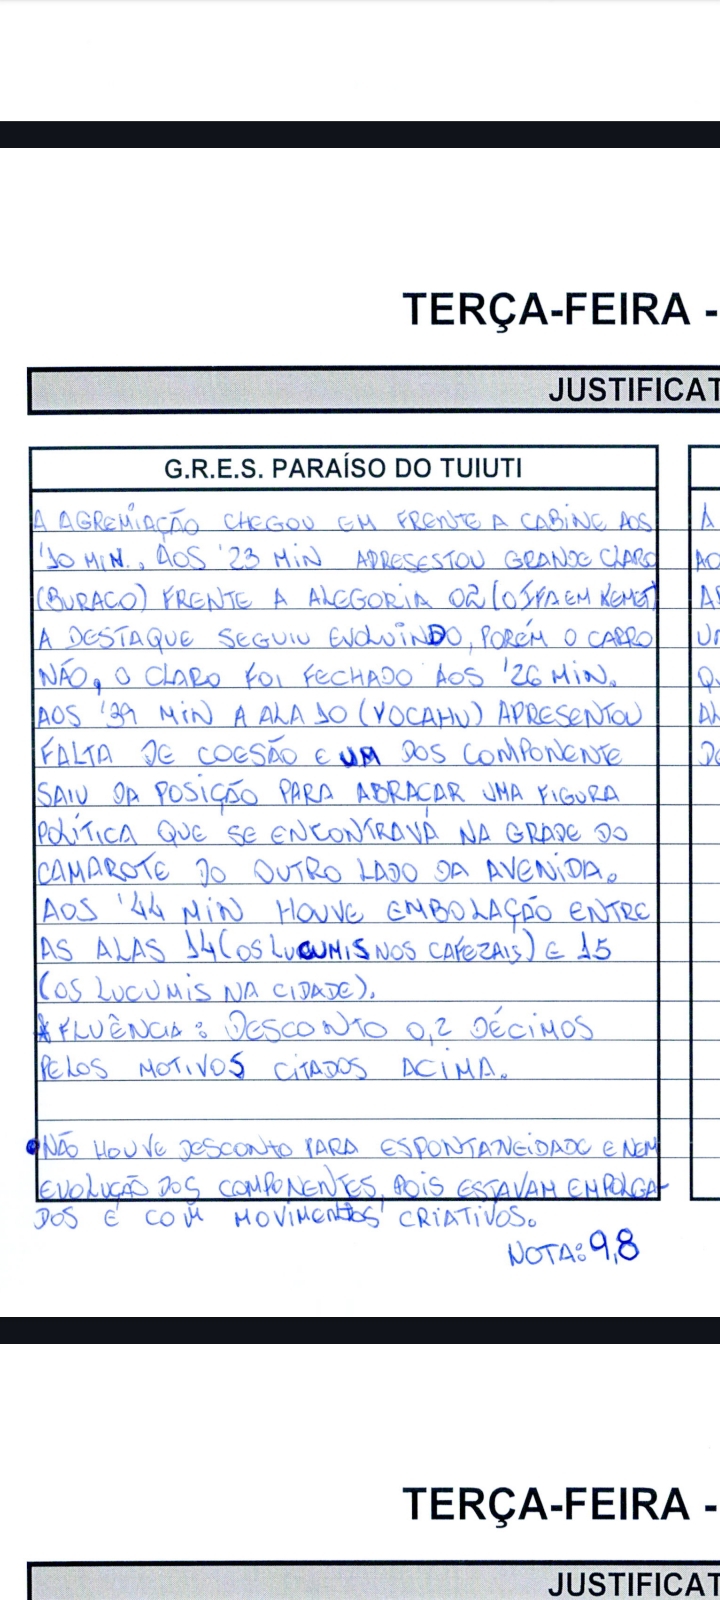 TERÇA-FEIRA -
JUSTIFICAT
G.R.E.S. PARAÍSO DO TUIUTI
A AGREMIAÇÃO CHEGOU EM FRENTE A CABINE AOS
'10 MIN. AOS '23 MIN APRESESTOU GRANDE CLARO
(BURACO) FRENTE A ALEGORIA 02 (O IFÁ EM KEMET)
A DESTAQUE SEGUIU EVOLUINDO, PORÉM O CARRO
NÃO, O CLARO FOI FECHADO AOS '26 MIN.
AOS '39 MIN A ALA 10 (YOCAHU) APRESENTOU
FALTA DE COESÃO E UM DOS COMPONENTE
SAIU DA POSIÇÃO PARA ABRAÇAR UMA FIGURA
POLÍTICA QUE SE ENCONTRAVA NA GRADE DO
CAMAROTE DO OUTRO LADO DA AVENIDA.
AOS '44 MIN HOUVE EMBOLAÇÃO ENTRE
AS ALAS 14 (OS LUCUMIS NOS CAFEZAIS) E 15
(OS LUCUMIS NA CIDADE).
FLUÊNCIA: DESCONTO 0,2 DÉCIMOS
PELOS MOTIVOS CITADOS ACIMA.
NÃO HOUVE DESCONTO PARA ESPONTANEIDADE E NEM
EVOLUÇÃO DOS COMPONENTES, POIS ESTAVAM EMPOLGA-
DOS E COM MOVIMENTOS CRIATIVOS.
NOTA: 9,8
TERÇA-FEIRA -
JUSTIFICAT